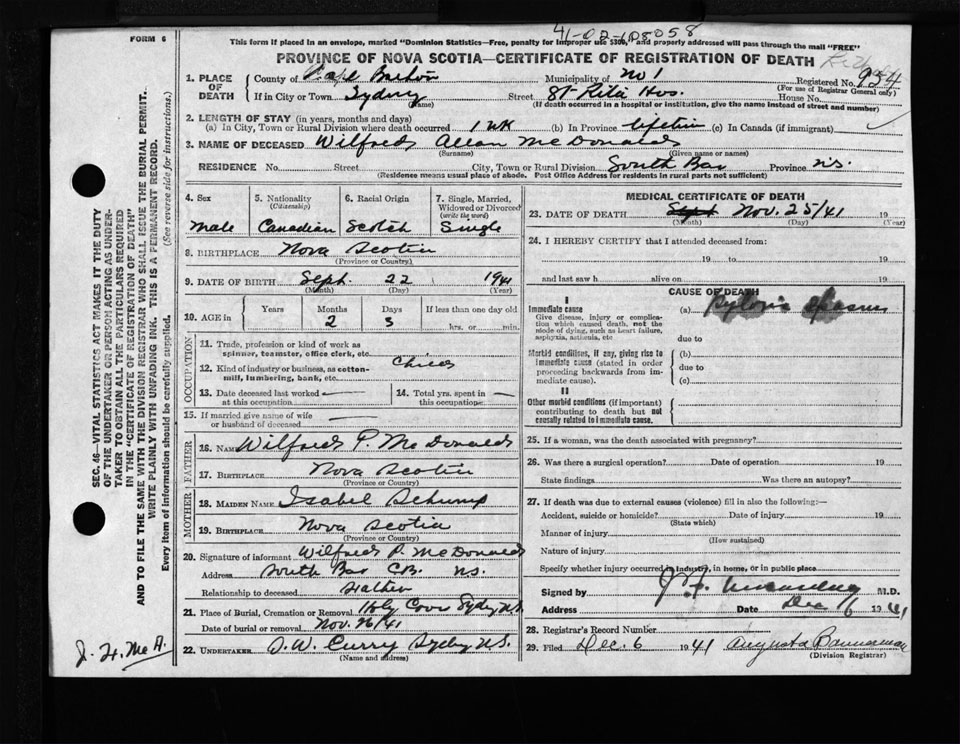 FORM 6
41-02-108058
This form if placed in an envelope, marked "Dominion Statistics—Free, penalty for improper use $300," and properly addressed will pass through the mail "FREE"
PROVINCE OF NOVA SCOTIA—CERTIFICATE OF REGISTRATION OF DEATH
1. PLACE OF DEATH
County of Cape Breton Municipality of No 1 Registered No. 954
(For use of Registrar General only)
If in City or Town Sydney Street St Rita Hos. House No.
(Name) (If death occurred in a hospital or institution, give the name instead of street and number)
2. LENGTH OF STAY (in years, months and days)
(a) In City, Town or Rural Division where death occurred 1 wk (b) In Province lifetim (c) In Canada (if immigrant)
3. NAME OF DECEASED Wilfred Allan McDonald
(Surname) (Given name or names)
RESIDENCE No. Street City, Town or Rural Division South Bar Province N.S.
(Residence means usual place of abode. Post Office Address for residents in rural parts not sufficient)
4. Sex 5. Nationality (Citizenship) 6. Racial Origin 7. Single, Married, Widowed or Divorced (write the word)
Male Canadian Scotch Single
8. BIRTHPLACE Nova Scotia
(Province or Country)
9. DATE OF BIRTH Sept. 22 1941
(Month) (Day) (Year)
10. AGE Years Months Days If less than one day old
2 3 hrs. or min.
OCCUPATION
11. Trade, profession or kind of work as spinner, teamster, office clerk, etc.
12. Kind of industry or business, as cotton-mill, lumbering, bank, etc. Child
13. Date deceased last worked at this occupation
14. Total yrs. spent in this occupation
15. If married give name of wife or husband of deceased
FATHER
16. NAME Wilfred P. McDonald
17. BIRTHPLACE Nova Scotia
(Province or Country)
MOTHER
18. MAIDEN NAME Isabel
19. BIRTHPLACE Nova Scotia
(Province or Country)
20. Signature of informant Wilfred P. McDonald
Address South Bar C.B. N.S.
Relationship to deceased Father
21. Place of Burial, Cremation or Removal Holy Cross Sydney N.S.
Date of burial or removal Nov. 26/41
22. UNDERTAKER D.W. Curry Sydney N.S.
(Name and address)
MEDICAL CERTIFICATE OF DEATH
23. DATE OF DEATH Sept Nov. 25/41 19
(Month) (Day) (Year)
24. I HEREBY CERTIFY that I attended deceased from:
19 to 19
and last saw h alive on 19
CAUSE OF DEATH
I
Immediate cause
Give disease, injury or complication which caused death, not the mode of dying, such as heart failure, asphyxia, asthenia, etc
(a)
due to
Morbid conditions, if any, giving rise to immediate cause (stated in order proceeding backwards from immediate cause).
(b)
due to
(c)
II
Other morbid conditions (if important) contributing to death but not causally related to immediate cause.
25. If a woman, was the death associated with pregnancy?
26. Was there a surgical operation? Date of operation 19
State findings Was there an autopsy?
27. If death was due to external causes (violence) fill in also the following:—
Accident, suicide or homicide? Date of injury 19
(State which)
Manner of injury
(How sustained)
Nature of injury
Specify whether injury occurred in industry, in home, or in public place
Signed by M.D.
Address Date Dec 6 1941
28. Registrar's Record Number
29. Filed Dec. 6 1941 Augusta Bannerman
(Division Registrar)
SEC. 46—VITAL STATISTICS ACT MAKES IT THE DUTY
OF THE UNDERTAKER OR PERSON ACTING AS UNDER-
TAKER TO OBTAIN ALL THE PARTICULARS REQUIRED
IN THE "CERTIFICATE OF REGISTRATION OF DEATH"
AND TO FILE THE SAME WITH THE DIVISION REGISTRAR WHO SHALL ISSUE THE BURIAL PERMIT.
WRITE PLAINLY WITH UNFADING INK. THIS IS A PERMANENT RECORD.
Every item of information should be carefully supplied. (See reverse side for instructions.)
J. H. McA.